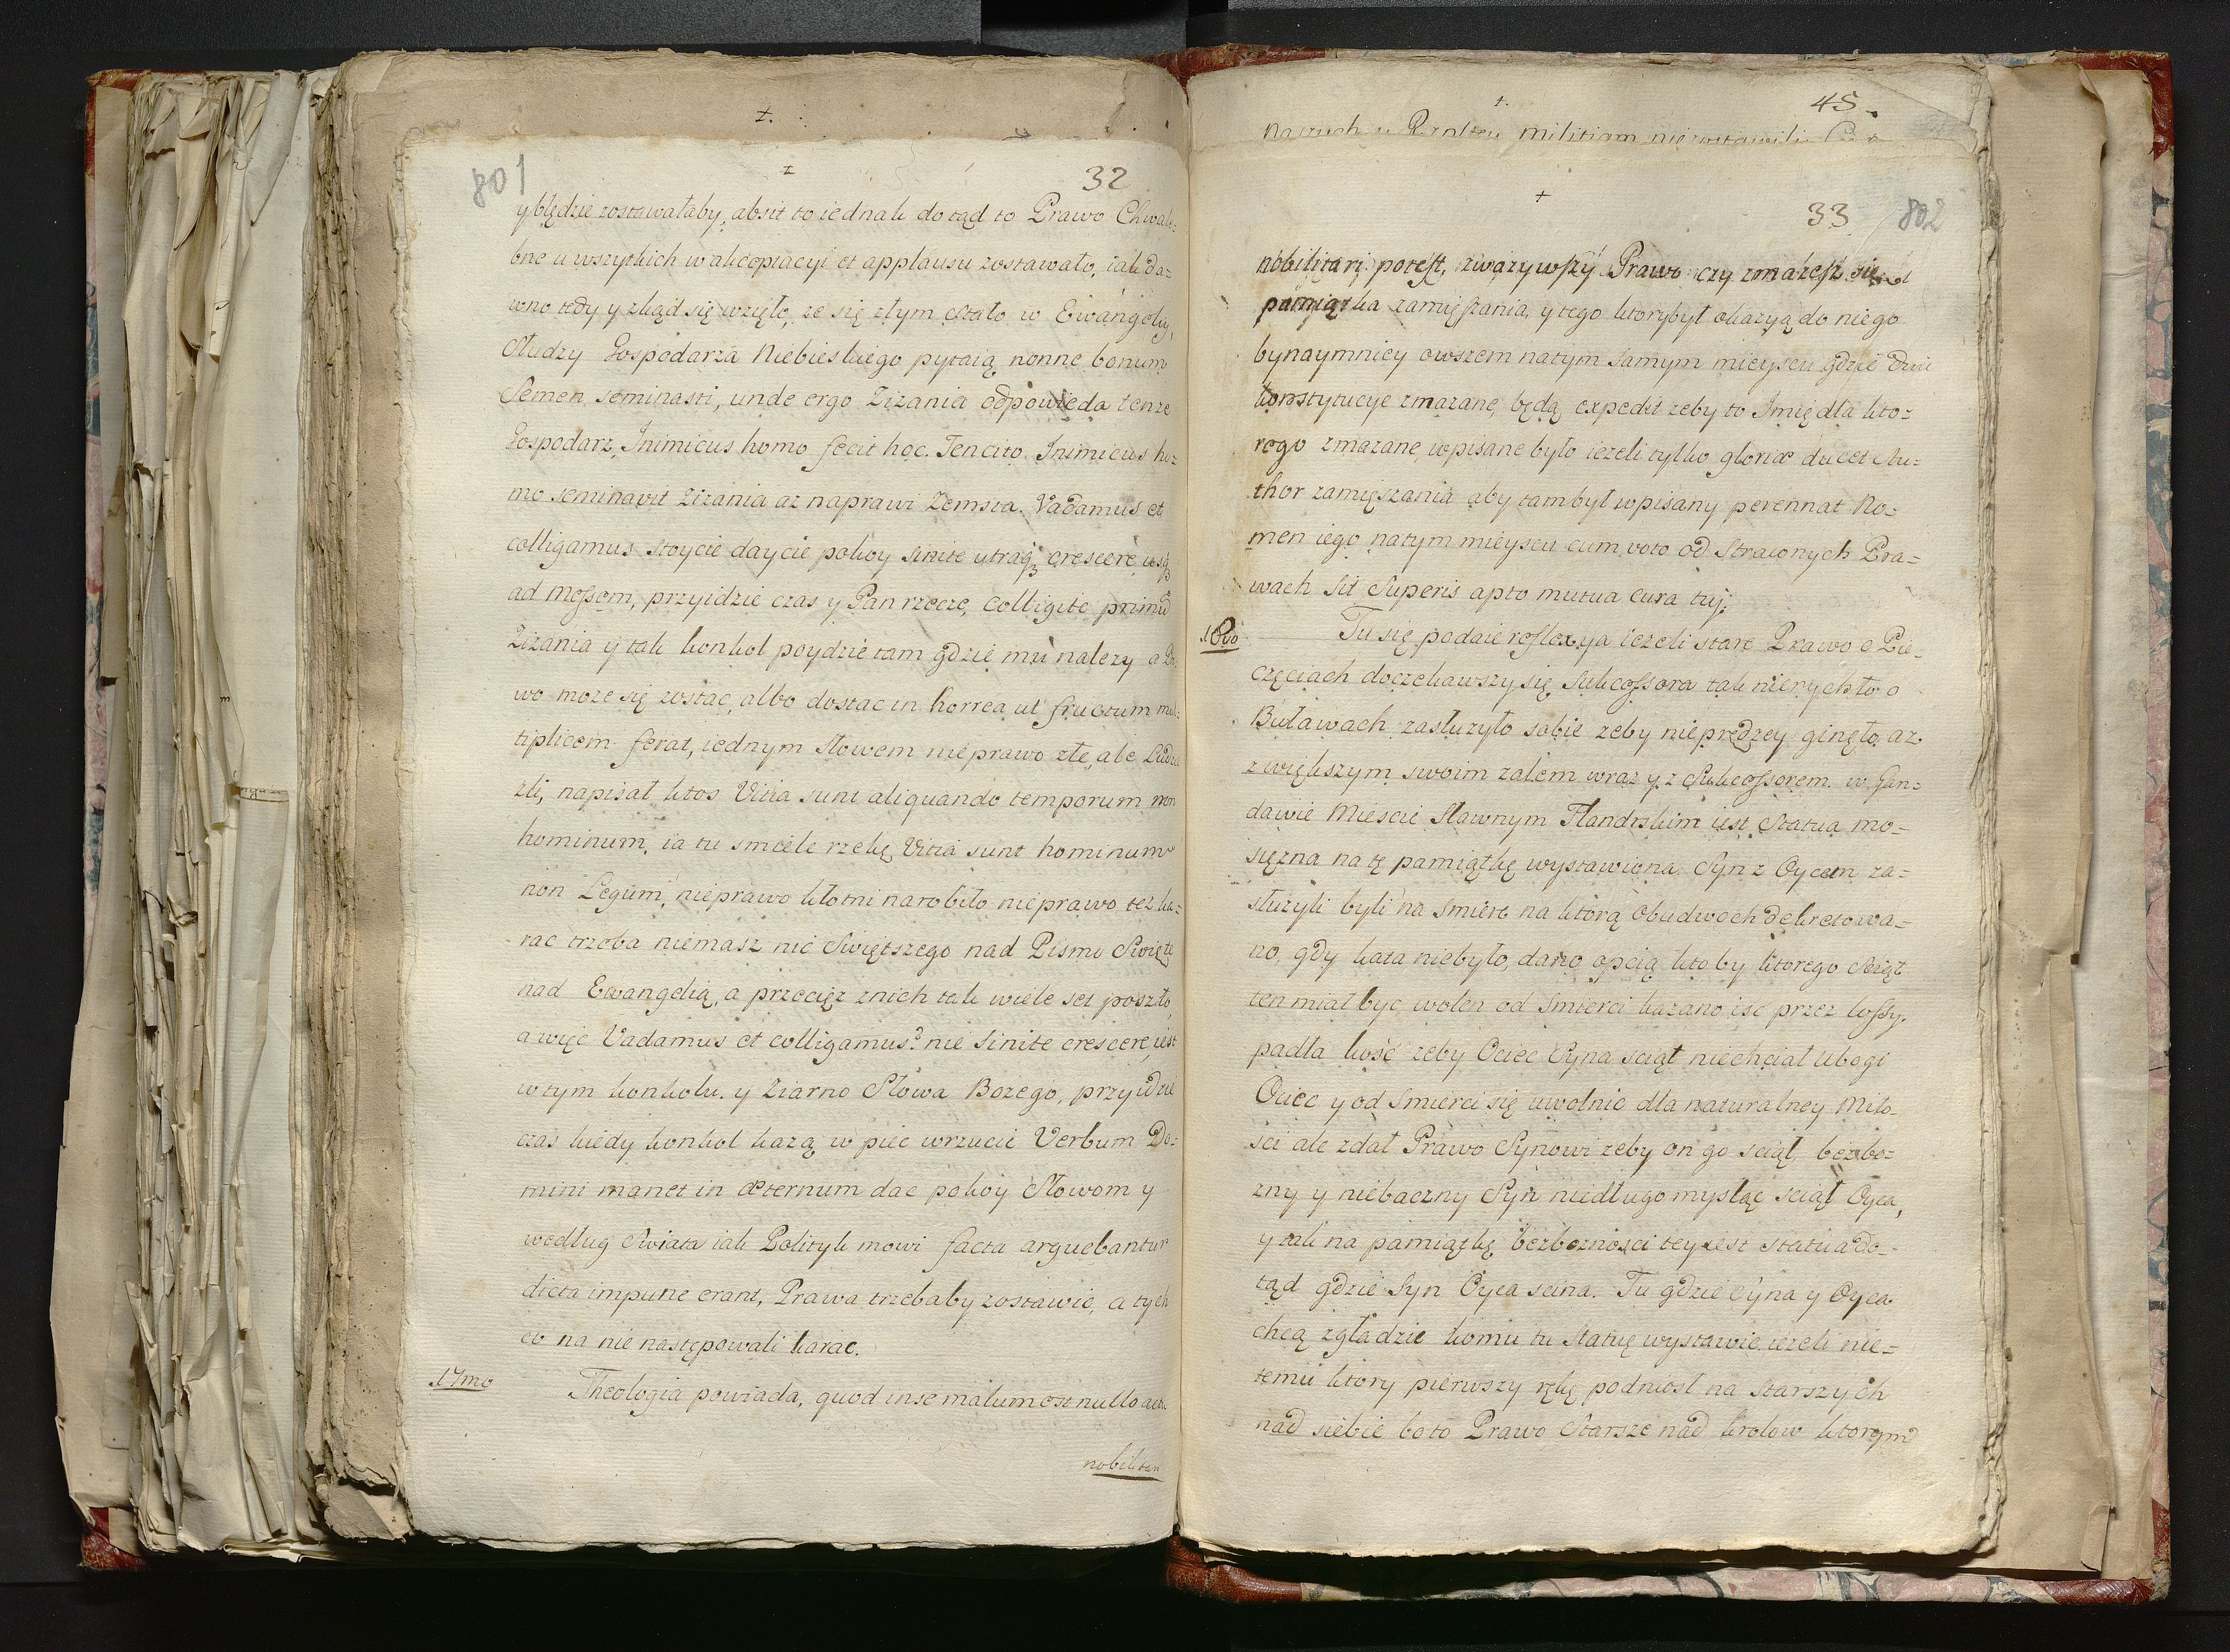 ‡.
801
‡
32
y błędzie zostawałaby, absit to iednak do tąd to Prawo Chwale=
bne u wszytkich w akceptacyi et applausu zostawało, iak da=
wno tedy y zkąd się wzięło, ze się złym stało w Ewangelij,
Słudzy Gospodarza Niebieskiego pytaią nonne bonum
Semen seminasti, unde ergo Zizania odpowieda tenze
Gospodarz, Inimicus homo fecit hoc. Tencito Inimicus ho=
mo seminavit Zizania az naprawi Zemsta. Vadamus et
colligamus stoycie daycie pokoy sinite utraq3 crescere usq3
ad Messem, przyidzie czas y Pan rzecze, Colligite primu
Zizania y tak konkol poydzie tam gdzie mu nalezy a Pra=
wo moze się zostac, albo dostac in horrea ut fructum mul=
tiplicem ferat, iednym słowem nie prawo złe, ale Ludzie
zli, napisał ktos Vitia sunt aliquando temporum non
hominum, ia tu smiele rzekę Vitia sunt hominum
non Legum, nieprawo kłotni narobiło nieprawo tez ka=
rac trzeba niemasz nic Swiętszego nad Pismo Swięte
nad Ewangelią, a przecięz znich tak wiele set poszło,
a więc Vadamus et colligamus? nie Sinite crescere, iest
w tym konkolu y Ziarno Słowa Bozego, przyidzie
czas kiedy konkol kazą w piec wrzucic Verbum Do=
mini manet in æternum dac pokoy Słowom y
według Swiata iak Polityk mowi facta arguebantur
dicta impune erant, Prawa trzebaby zostawic, a tych
co na nie następowali karac.
17mo Theologia powiada, quod in se malum est nullo actu
nobilitari
‡.
45.
naszych u Rzpltey militiam nie zostawili
+
33
802
nobilitari potest, zwazywszy Prawo czy zmazesz się
pamiątka zamięszania, y tego ktory był okazyą do niego
bynaymniey owszem na tym samym mieyscu gdzie dwie
konstytucye zmazane, będą expedit zeby to Imię dla kto=
rego zmazane wpisane było iezeli tylko gloriæ ducet Au=
thor zamięszania aby tam był wpisany perennat No=
men iego na tym mieyscu cum voto od Straconych Pra=
wach Sit Superis apto mutua cura tuj.
18vo Tu się podaie reflexya iezeli stare Prawo o Pie=
częciach doczekawszy się Sukcessora tak
Buławach zasłuzyło sobie zeby nieprędzey ginęło, az
z większym swoim zalem wraz y z Sukcessorem. w Gan=
dawie Miescie Sławnym Flandrskim iest Statua mo=
sięzna na tę pamiątkę wystawiona. Syn z Oycem za=
słuzyli byli na smierc na ktorą obudwoch dekretowa=
no, gdy kata niebyło, dano opcią kto by ktorego sciął
ten miał byc wolen od smierci kazano isc przez lossy,
padła kość zeby Ociec Syna sciął niechciał ubogi
Ociec y od smierci się uwolnic dla naturalney Miło=
sci ale zdał Prawo Synowi zeby on go sciął, bezbo=
zny y niebaczny Syn niedługo mysląc sciął Oyca,
y tak na pamiątkę bezboznosci tey iest statua do=
tąd gdzie Syn Oyca scina. Tu gdzie Syna y Oyca
chcą zgładzic komu tu Statuę wystawic iezeli nie=
temu ktory pierwszy rękę podniosł na starszych
nad siebie bo to Prawo Starsze nad krolow ktorym